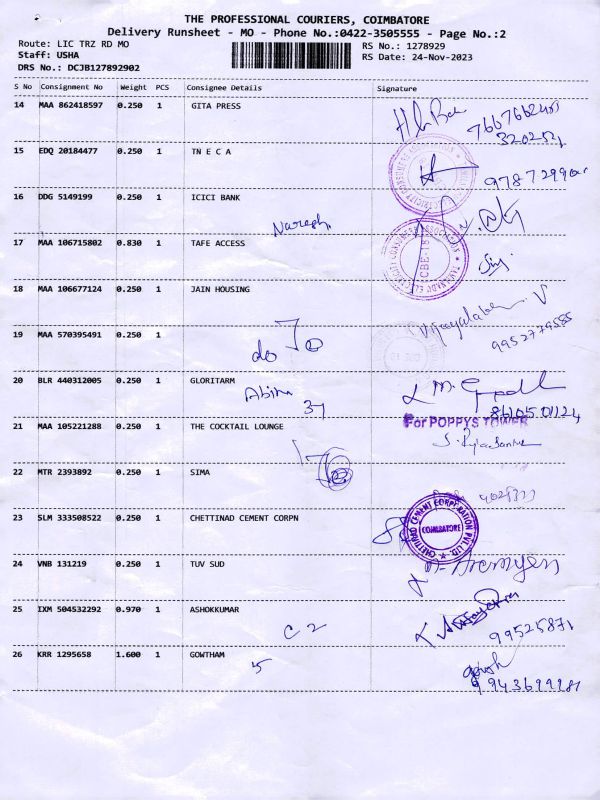 THE PROFESSIONAL COURIERS, COIMBATORE
Delivery Runsheet - MO - Phone No.:0422-3505555 - Page No.:2
Route: LIC TRZ RD MO
RS No.: 1278929
Staff: USHA
RS Date: 24-Nov-2023
DRS No.: DCJB127892902
S No Consignment No Weight PCS Consignee Details Signature
14 MAA 862418597 0.250 1 GITA PRESS
15 EDQ 20184477 0.250 1 TN E C A
16 DDG 5149199 0.250 1 ICICI BANK
Naresh
17 MAA 106715802 0.830 1 TAFE ACCESS
18 MAA 106677124 0.250 1 JAIN HOUSING
Vijayalaben V
9952779585
19 MAA 570395491 0.250 1
do
20 BLR 440312005 0.250 1 GLORITARM
Abina
37
For POPPYS TOWER
21 MAA 105221288 0.250 1 THE COCKTAIL LOUNGE
22 MTR 2393892 0.250 1 SIMA
23 SLM 333508522 0.250 1 CHETTINAD CEMENT CORPN
CHETTINAD CEMENT CORPORATION PVT. LTD.
COIMBATORE
24 VNB 131219 0.250 1 TUV SUD
25 IXM 504532292 0.970 1 ASHOKKUMAR
C 2
26 KRR 1295658 1.600 1 GOWTHAM
5